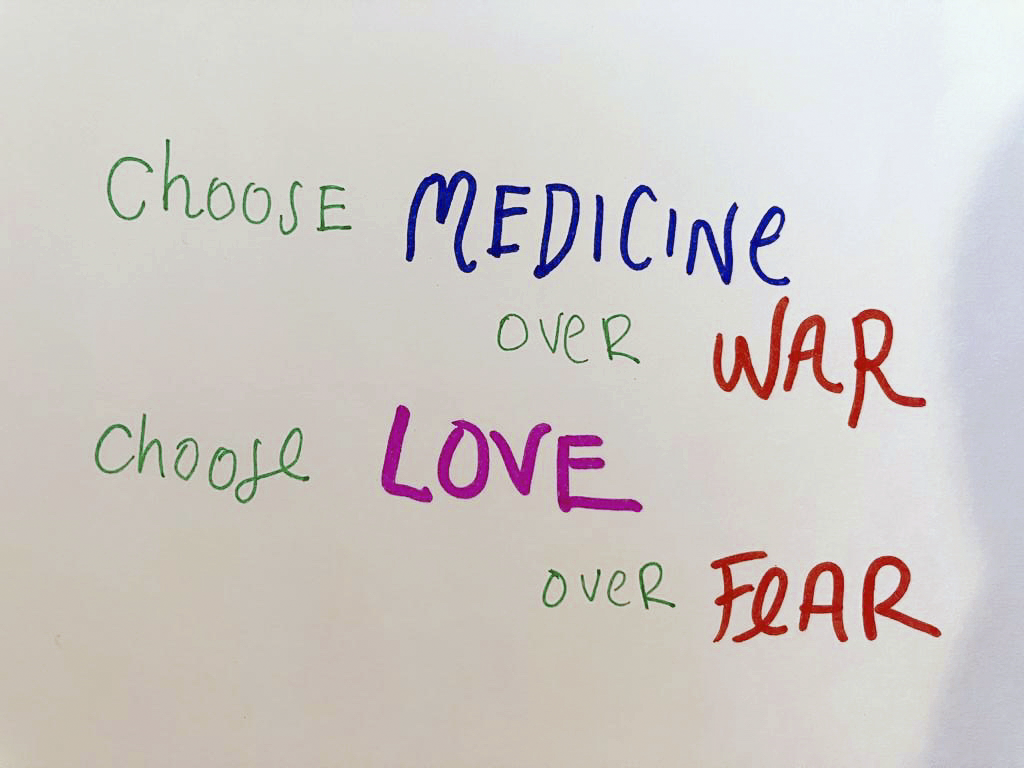 Choose MEDICINE
over WAR
Choose LOVE
over FEAR